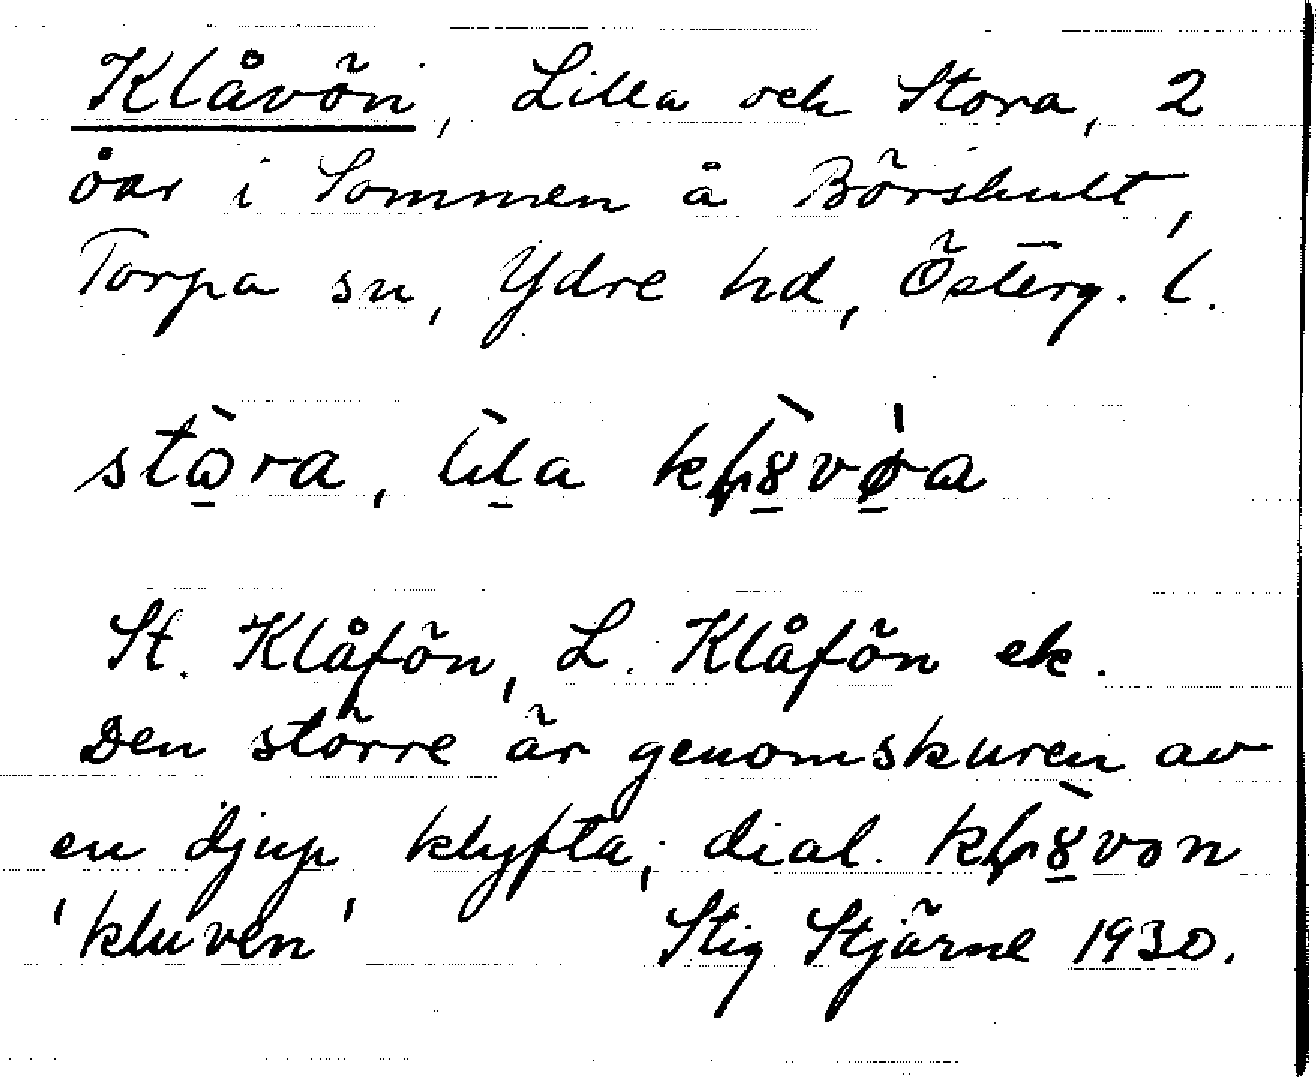 Klåvön, Lilla och Stora, 2
öar i Sommen å Börshult,
Torpa sn, Ydre hd, Österg. l.
stòra, lìla
St. Klåfön, L. Klåfön ek.
Den större är genomskuren av
en djup klyfta; dial.
'kluven' Stig Stjärne 1930.